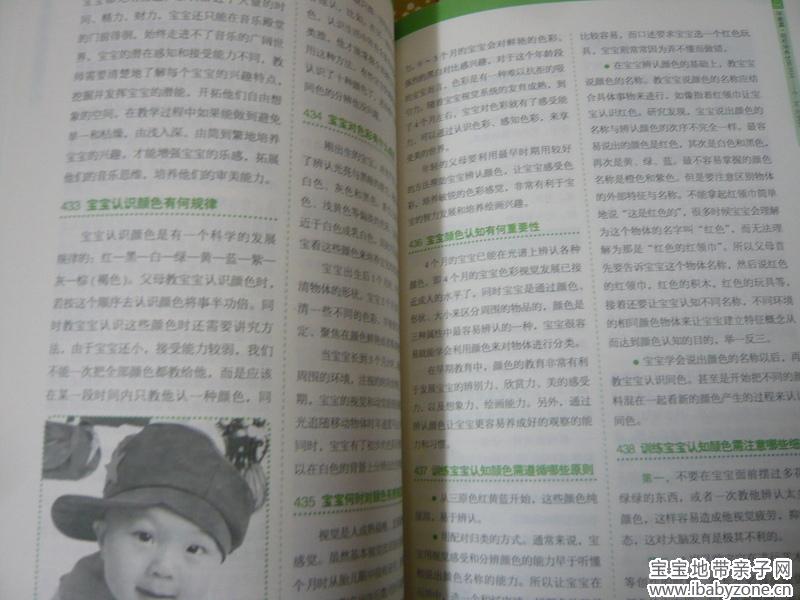 时间、精力、财力，宝宝还只能在音乐殿堂
的门前徘徊，始终走进不了音乐的广阔世
界。宝宝的潜在感知和接受能力不同，教
师需要清楚地了解每个宝宝的兴趣特点，
挖掘并发挥宝宝的潜能，开拓他们自由想
象的空间。在教学过程中如果能做到避免
单一和枯燥，由浅入深、由简到繁地培养
宝宝的兴趣，才能增强宝宝的乐感，拓展
他们的音乐思维，培养他们的审美能力。
433 宝宝认识颜色有何规律
宝宝认识颜色是有一个科学的发展
规律的：红—黑—白—绿—黄—蓝—紫—
灰—棕（褐色）。父母教宝宝认识颜色时，
若按这个顺序去认识颜色将事半功倍。同
时教宝宝认识这些颜色时还需要讲究方
法，由于宝宝还小，接受能力较弱，我们
不能一次把全部颜色都教给他，而是应该
在某一段时间内只教他认一种颜色，同
用这种方法，
认识了十种颜色了，
同色的分辨也没问题
434 宝宝对色彩有什么
刚出生的宝宝，
了辨认光亮与黑暗的
白色、灰色和黑色，
色、浅黄色等偏浅的
近于白色或乳白色，
宝看这些颜色来培养
宝宝出生后1个月，
清物体的形状，宝宝2个月
清一些不同的色彩，
定、聚焦在颜色鲜艳
当宝宝长到3个月
周围的环境，注视的
期，宝宝的视觉和动觉
光追随移动物体时
同时，宝宝有了初步的
以在白色的背景上分辨出
435 宝宝何时对颜色
视觉是人成熟最晚
感觉。虽然基本视觉
个月时从胎儿眼中
3～5个月的宝宝会对鲜艳的色彩、
强烈的黑白对比感兴趣，对于这个年龄段
的宝宝而言，色彩是有一种难以抗拒的吸
引力。随着宝宝视觉系统的发育成熟，到
了4个月左右，宝宝对色彩就有了感受能
力，可以通过认识色彩、感知色彩，来享
受美的世界。
年轻的父母要利用最早时期用较好
的方法帮助宝宝辨认颜色，让宝宝感受色
彩。培养敏锐的色彩感觉，非常有利于宝
宝的智力发展和培养绘画兴趣。
436 宝宝颜色认知有何重要性
4个月的宝宝已能在光谱上辨认各种
颜色，即4个月的宝宝色彩视觉发展已接
近成人的水平了。同时宝宝是通过颜色、
形状、大小来区分周围的物品的，颜色是
三种属性中最容易辨认的一种，宝宝很容
易就能学会利用颜色来对物体进行分类。
在早期教育中，颜色的教育非常有利
于发展宝宝的辨别力、欣赏力、美的感受
力，以及想象力、绘画能力。另外，通过
辨认颜色让宝宝更容易养成好的观察的能
力和习惯。
437 训练宝宝认知颜色需遵循哪些原则
● 从三原色红黄蓝开始，这些颜色纯
度高，易于辨认。
● 用配对归类的方式。通常来说，宝
宝用视觉感受和分辨颜色的能力早于听懂
和说出颜色名称的能力。所以让宝宝在
比较容易，而口述要求宝宝选一个红色玩
具，宝宝则常常因为弄不懂而做错。
● 在宝宝辨认颜色的基础上，教宝宝
说颜色的名称。教宝宝说颜色的名称应结
合具体事物来进行，如像指着红领巾让宝
宝认识红色。研究发现，宝宝说出颜色的
名称与辨认颜色的次序不完全一样。最容
易说出的颜色是红色，其次是白色和黑色，
再次是黄、绿、蓝，最不容易掌握的颜色
名称是橙色和紫色。但是要注意区别物体
的外部特征与名称。不能拿起红领巾简单
地说“这是红色的”，很多时候宝宝会理解
为这个物体的名字叫“红色”，而无法理
解为那是“红色的红领巾”。所以父母首
先要告诉宝宝这个物体名称，然后说红色
的红领巾，红色的积木，红色的玩具等，
接着还要让宝宝认知不同名称，不同环境
的相同颜色物体来让宝宝建立特征概念从
而达到颜色认知的目的，举一反三。
● 宝宝学会说出颜色的名称以后，再
教宝宝认识同色。甚至是开始把不同的颜
料混在一起看新的颜色产生的过程来认识
同色。
438 训练宝宝认知颜色需注意哪些细
第一，不要在宝宝面前摆过多花
绿绿的东西，或者一次教他辨认太
颜色，这样容易造成他视觉疲劳，抑
态，这对大脑发育是极其不利的。
宝宝地带亲子网
www.ibabyzone.cn